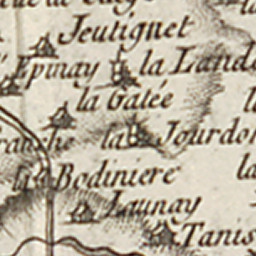 Jeutignet
Epinay
la Lande
la Gatée
la Jourdon
la Bodiniere
Launay
Tanis